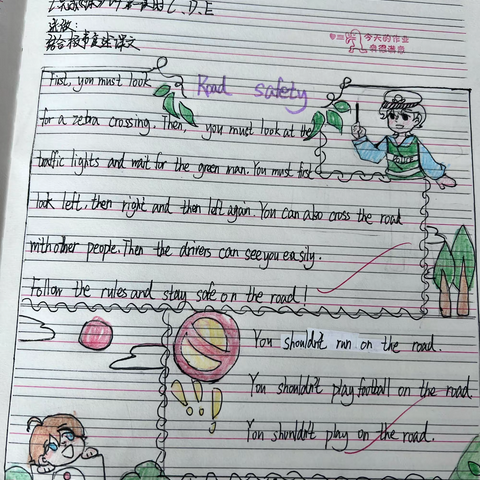 C、D、E
结合板书复述课文
今天的作业
Road safety
First, you must look
for a zebra crossing. Then, you must look at the
traffic lights and wait for the green man. You must first
look left, then right and then left again. You can also cross the road
with other people. Then the drivers can see you easily.
Follow the rules and stay safe on the road!
You shouldn't run on the road.
You shouldn't play football on the road
You shouldn't play on the road.